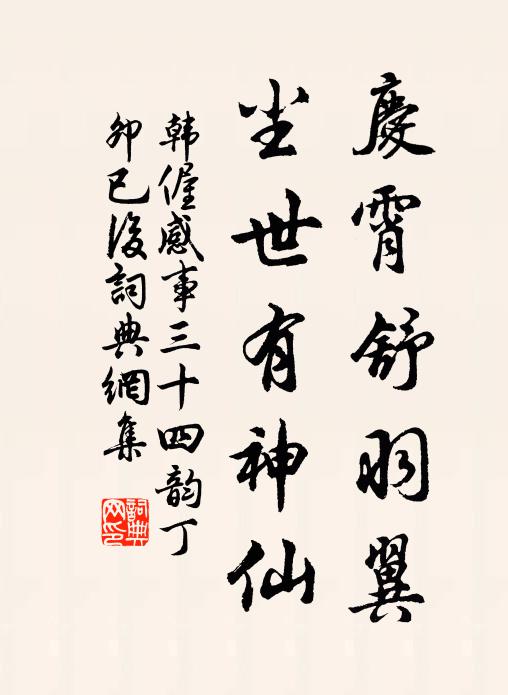 慶霄舒羽翼
尘世有神仙
韩偓感事三十四韵丁
卯已後詞典網集
詞典网印